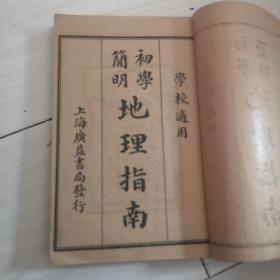 學校適用
初學
簡明
地理指南
上海廣益書局發行